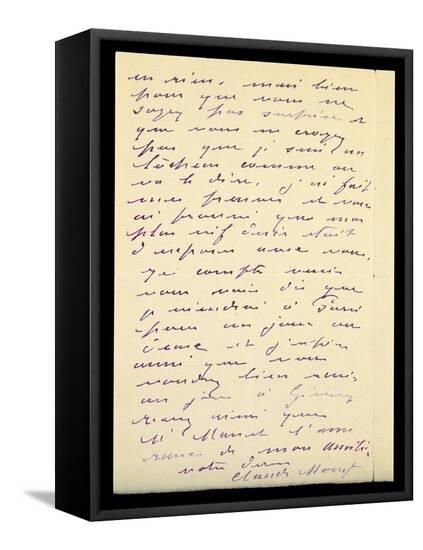 en rien, mais bien
pour que vous ne
soyez pas surprise et
que vous ne croyez
pas que je suis un
lâcheur comme on
va le dire, j'ai fait
mes preuves et vous
ai prouvé que mon
plus vif désir était
d'exposer avec vous.
Je compte venir
vous voir dès que
je viendrai à Paris
pour un jour ou
deux et j'espère
aussi que vous
voudrez bien venir
un jour à Giverny
ainsi que
M. Manet l'assu
rance de mon amitié
votre
Claude Monet